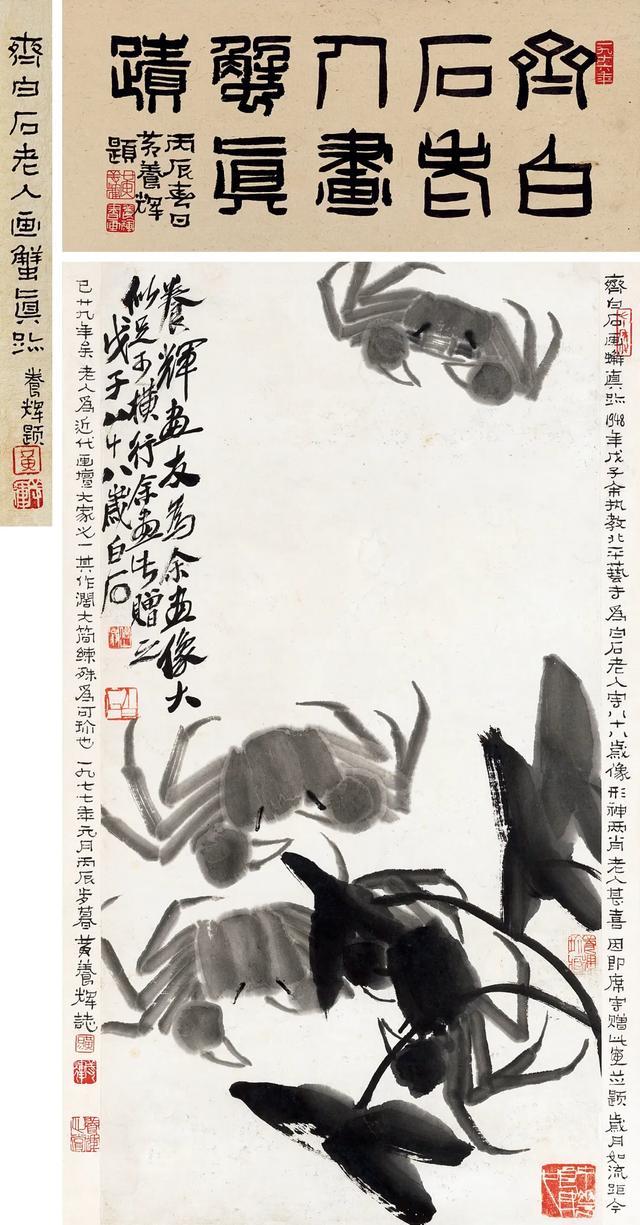 齊白石老人画蟹眞跡 養辉题
齊白
石老
人畫
蟹眞
蹟
丙辰春日
黄養輝
題
一九七六年
齊白石画蟹真跡 1948年戊子余执教北平藝专為白石老人寫八十八歲像形神两肖老人甚喜因即席寫赠此畫並题歲月如流距今
養輝畫友為余畫像大
似足不橫行余畫此贈之
戊子八十八歲白石
已廿九年矣老人爲近代画壇大家之一其作濶大简練殊爲可珍也一九七七年元月丙辰岁暮黄養辉誌